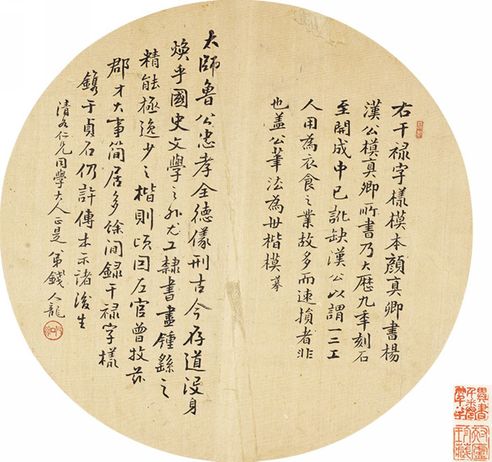 右干祿字樣模本顏真卿書楊
漢公模真卿所書乃大歷九年刻石
至開成中已訛缺漢公以謂一二工
人用為衣食之業故多而速損者非
也蓋公筆法為世楷模摹
太師魯公忠孝全德儀刑古今存道沒身
煥乎國史文學之外尤工隸書盡鍾繇之
精能極逸少之楷則頃因左官曾牧茲
郡才大事簡居多餘閒錄干祿字樣
鐫于貞石仍許傳本示諸後生
清仁兄同學大人正是弟錢人龍